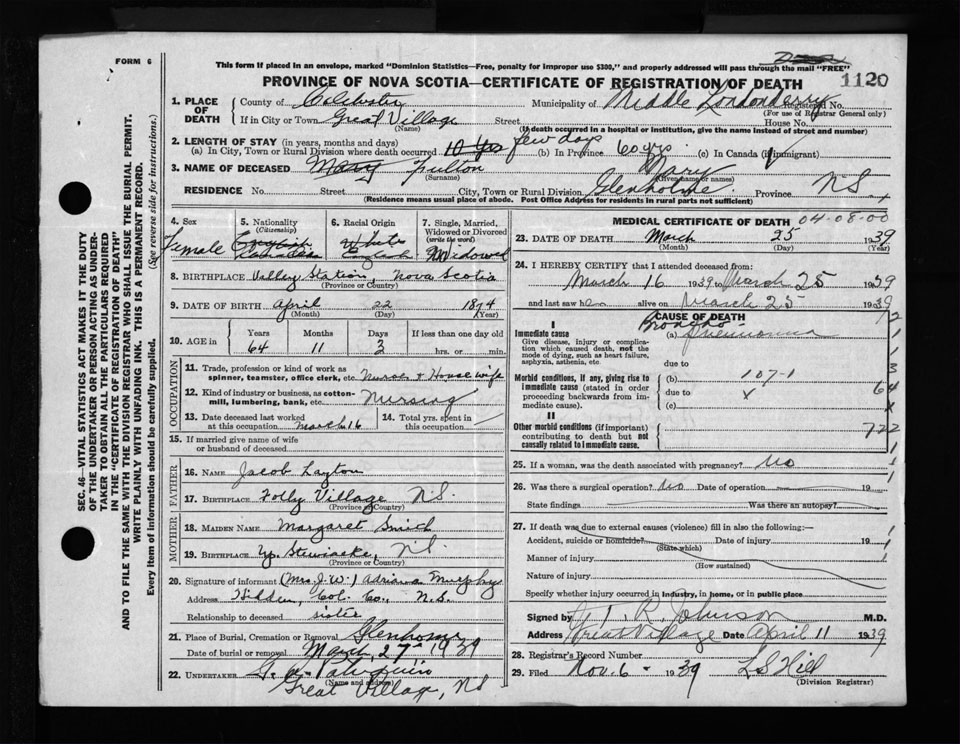 FORM 6
This form if placed in an envelope, marked "Dominion Statistics—Free, penalty for improper use $300," and properly addressed will pass through the mail "FREE"
PROVINCE OF NOVA SCOTIA—CERTIFICATE OF REGISTRATION OF DEATH
1120
SEC. 46—VITAL STATISTICS ACT MAKES IT THE DUTY
OF THE UNDERTAKER OR PERSON ACTING AS UNDER-
TAKER TO OBTAIN ALL THE PARTICULARS REQUIRED
IN THE "CERTIFICATE OF REGISTRATION OF DEATH"
AND TO FILE THE SAME WITH THE DIVISION REGISTRAR WHO SHALL ISSUE THE BURIAL PERMIT.
WRITE PLAINLY WITH UNFADING INK. THIS IS A PERMANENT RECORD.
Every item of information should be carefully supplied. (See reverse side for instructions.)
1. PLACE OF DEATH County of Colchester Municipality of Middle Londonderry Registered No.
(For use of Registrar General only)
If in City or Town Great Village Street House No.
(Name) (If death occurred in a hospital or institution, give the name instead of street and number)
2. LENGTH OF STAY (in years, months and days)
(a) In City, Town or Rural Division where death occurred 10 yrs few days (b) In Province 60 yrs (c) In Canada (if immigrant)
3. NAME OF DECEASED Mary Fulton Mary
(Surname) (Given name or names)
RESIDENCE No. Street City, Town or Rural Division Glenholme Province N.S.
(Residence means usual place of abode. Post Office Address for residents in rural parts not sufficient)
4. Sex
Female
5. Nationality
(Citizenship)
English
Canadian
6. Racial Origin
White
English
7. Single, Married,
Widowed or Divorced
(write the word)
Widowed
8. BIRTHPLACE Valley Station Nova Scotia
(Province or Country)
9. DATE OF BIRTH April 22 1874
(Month) (Day) (Year)
10. AGE in Years Months Days If less than one day old
64 11 3 hrs. or min.
OCCUPATION
11. Trade, profession or kind of work as
spinner, teamster, office clerk, etc. Nurse & House wife
12. Kind of industry or business, as cotton-
mill, lumbering, bank, etc. Nursing
13. Date deceased last worked
at this occupation March 16
14. Total yrs. spent in
this occupation
15. If married give name of wife
or husband of deceased
FATHER
16. NAME Jacob Layton
17. BIRTHPLACE Folly Village N.S.
(Province or Country)
MOTHER
18. MAIDEN NAME Margaret Smith
19. BIRTHPLACE Up. Stewiacke, N.S.
(Province or Country)
20. Signature of informant (Mrs. J. W.) Adrianna Murphy
Address Hidden, Col. Co., N.S.
Relationship to deceased sister
21. Place of Burial, Cremation or Removal Glenholme
Date of burial or removal March 27 1939
22. UNDERTAKER
(Name and address)
Great Village, NS
MEDICAL CERTIFICATE OF DEATH 04-08-00
23. DATE OF DEATH March 25 1939
(Month) (Day) (Year)
24. I HEREBY CERTIFY that I attended deceased from
March 16 1939 to March 25 1939
and last saw her alive on March 25 1939
CAUSE OF DEATH
I
Immediate cause (a) Broncho Pneumonia
Give disease, injury or compli-
cation which caused death, not the
mode of dying, such as heart failure,
asphyxia, asthenia, etc. due to
Morbid conditions, if any, giving rise to
immediate cause (stated in order
proceeding backwards from im-
mediate cause).
(b) 107-1
due to x
(c)
II
Other morbid conditions (if important)
contributing to death but not
causally related to immediate cause.
2
1
1
3
1
64
x
722
1
1
1
25. If a woman, was the death associated with pregnancy? No
26. Was there a surgical operation? No Date of operation 19
State findings Was there an autopsy?
27. If death was due to external causes (violence) fill in also the following:—
Accident, suicide or homicide? Date of injury 19
(State which)
Manner of injury
(How sustained)
Nature of injury
Specify whether injury occurred in industry, in home, or in public place
Signed by T. R. Johnson M.D.
Address Great Village Date April 11 1939
28. Registrar's Record Number
29. Filed Nov. 6 - 1939 L S Hill
(Division Registrar)